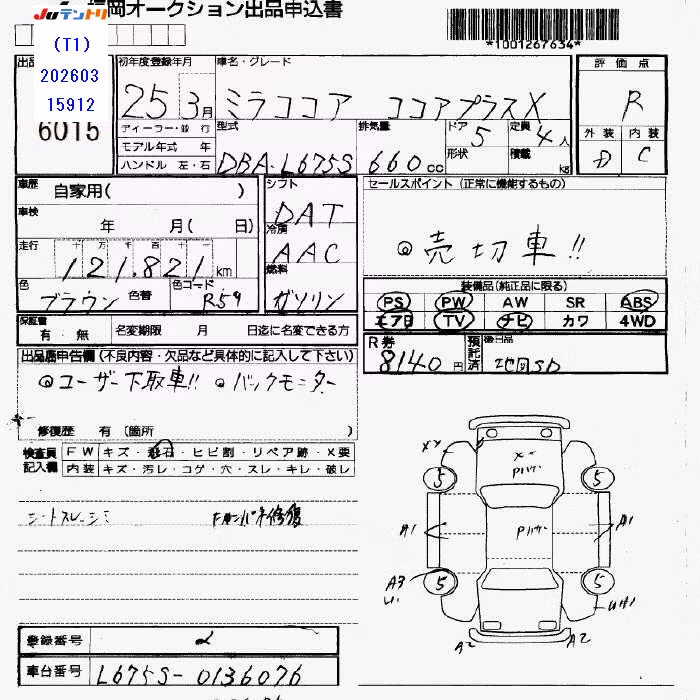 JUテントリ
福岡オークション出品申込書
*1001267634*
(T1)
202603
15912
6015
初年度登録年月
25 3月
ディーラー・並行
モデル年式 年
ハンドル 左・右
車名・グレード
ミラココア ココアプラスX
型式
DBA-L675S
排気量
660cc
ドア 5
形状
定員 4人
積載 kg
評価点
R
外装 内装
D C
車歴 自家用( )
車検 年 月( 日)
走行 十万千百十一
121,821km
色 ブラウン 色替 色コード R59
シフト
DAT
冷房
AAC
燃料
ガソリン
セールスポイント(正常に機能するもの)
◎売切車!!
装備品(純正品に限る)
PS PW AW SR ABS
エアB TV ナビ カワ 4WD
保証書 有・無
名変期限 月 日迄に名変できる方
R券 8140円
預託済
後日品 地図SD
出品店申告欄(不良内容・欠品など具体的に記入して下さい)
◎ユーザー下取車!! ◎バックモニター
修復歴 有(箇所 )
検査員記入欄
FW キズ・飛石・ヒビ割・リペア跡・X要
内装 キズ・汚レ・コゲ・穴・スレ・キレ・破レ
シートスレ・シミ
Pハゲ
Pハゲ
5 5
A1 A1
A3 5 5
A2 A2
登録番号
車台番号 L675S-0136076